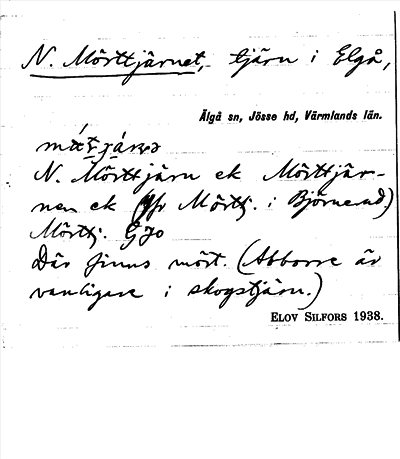 N. Mörttjärnet, tjärn i Elgå,
Älgå sn, Jösse hd, Värmlands län.
N. Mörttjärn ek Mörttjär-
nen ek (Jfr Mörttj. i Björnerud)
Mörttj. Gjo
Där finns mört. (Abborre är
vanligare i skogstjärn.)
ELOV SILFORS 1938.